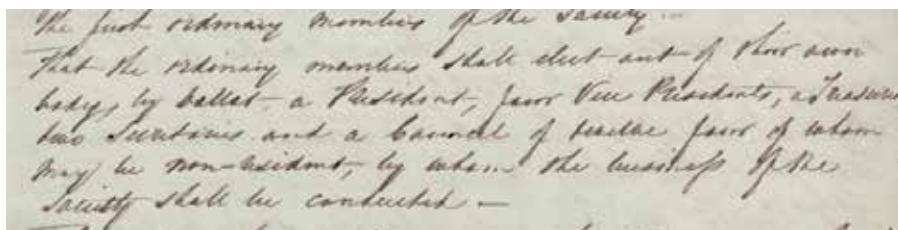 the first ordinary members of the Society —
That the ordinary members shall elect out of their own
body, by ballot, a President, four Vice Presidents, a Treasurer
two Secretaries and a Council of twelve four of whom
may be non-resident, by whom the business of the
Society shall be conducted —